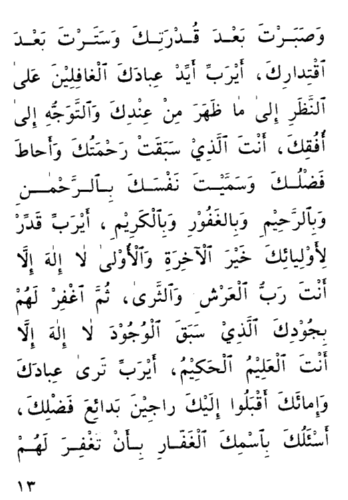 وَصَبَرْتَ بَعْدَ قُدْرَتِكَ وَسَتَرْتَ بَعْدَ
ٱقْتِدارِكَ، أَيْرَبِّ أَيِّدْ عِبادَكَ ٱلْغافِلِيْنَ عَلىٰ
ٱلنَّظَرِ إِلىٰ ما ظَهَرَ مِنْ عِنْدِكَ وَٱلتَّوَجُّهِ إِلىٰ
أُفُقِكَ، أَنْتَ ٱلَّذِيْ سَبَقَتْ رَحْمَتُكَ وَأَحاطَ
فَضْلُكَ وَسَمَّيْتَ نَفْسَكَ بِٱلرَّحْمٰنِ
وَبِٱلرَّحِيْمِ وَبِٱلغَفُوْرِ وَبِٱلْكَرِيْمِ، أَيْرَبِّ قَدِّرْ
لِأَوْلِيائِكَ خَيْرَ ٱلْآخِرَةِ وَٱلْأُوْلىٰ لا إِلٰهَ إِلَّا
أَنْتَ رَبُّ ٱلْعَرْشِ وَٱلثَّرىٰ، ثُمَّ ٱغْفِرْ لَهُمْ
بِجُوْدِكَ ٱلَّذِيْ سَبَقَ ٱلْوُجُوْدَ لا إِلٰهَ إِلَّا
أَنْتَ ٱلْعَلِيْمُ ٱلْحَكِيْمُ، أَيْرَبِّ تَرىٰ عِبادَكَ
وَإِمائَكَ أَقْبَلُوا إِلَيْكَ راجِيْنَ بَدائِعَ فَضْلِكَ،
أَسْئَلُكَ بِٱسْمِكَ ٱلْغَفّارِ بِأَنْ تَغْفِرَ لَهُمْ
١٣